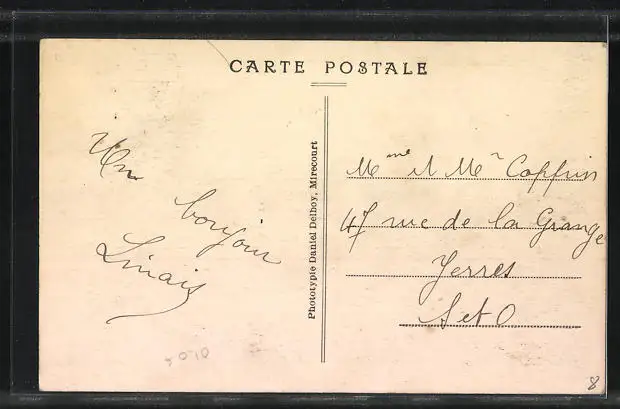 CARTE POSTALE
Un
bonjour
Linais
Phototypie Daniel Delboy, Mirecourt
Mme et Mr Coffrin
47 rue de la Grange
Yerres
S et O
8